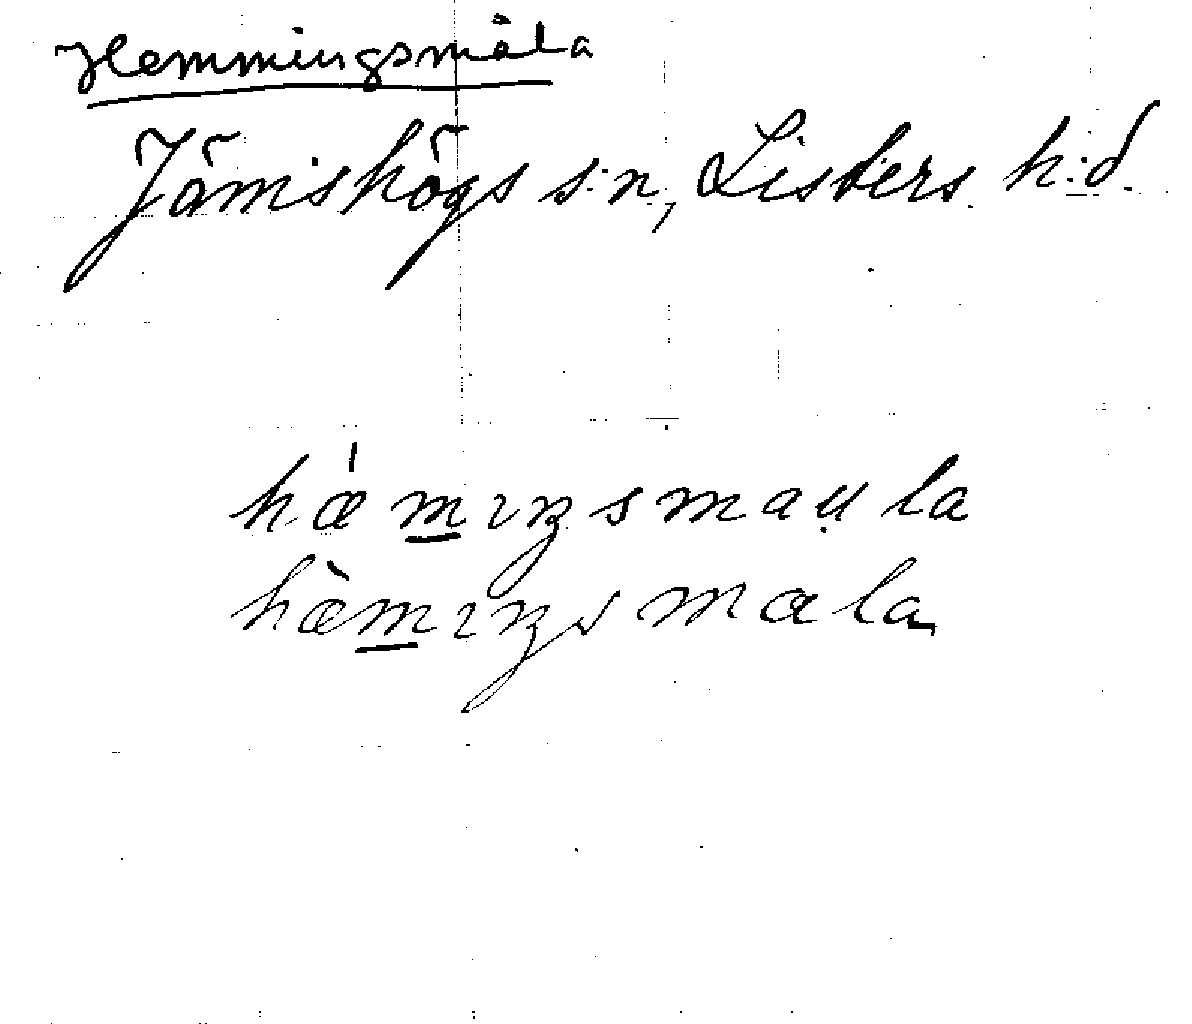 Hemmingsmåla
Jämshögs s:n, Listers h:d.
hæ̀mıŋsmau̯la
hæ̀mıŋsmala